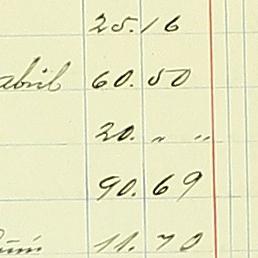 25.16
abril 60.50
20. „ „
90.69
11.70